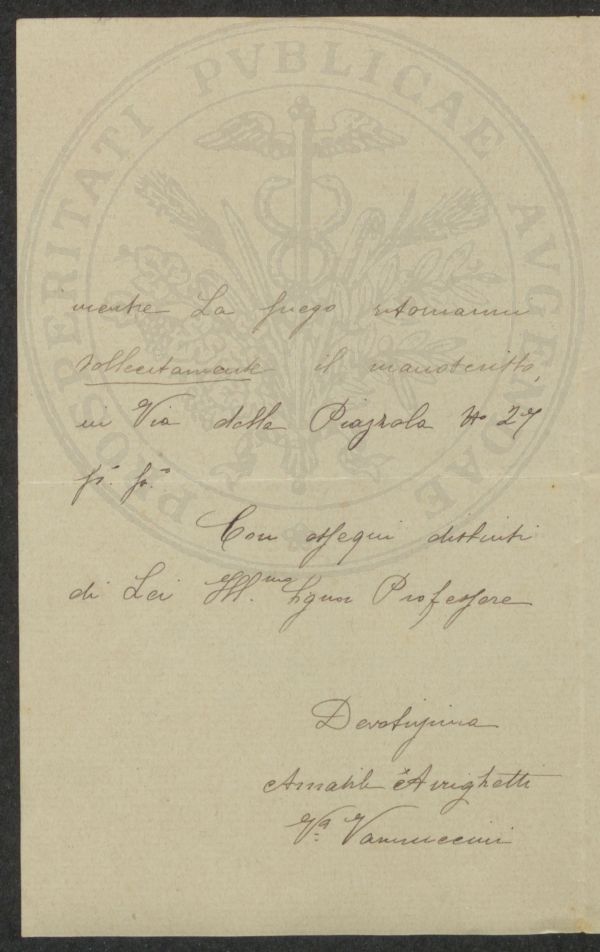 PROSPERITATI PVBLICAE AVGENDAE
mentre La prego ritornarmi
sollecitamente il manoscritto,
in Via della Piazzola No 27
p.° p.°
Con ossequi distinti
di Lei Ill.mo Signor Professore
Devotissima
Amabile Arrighetti
Va Vannuccini